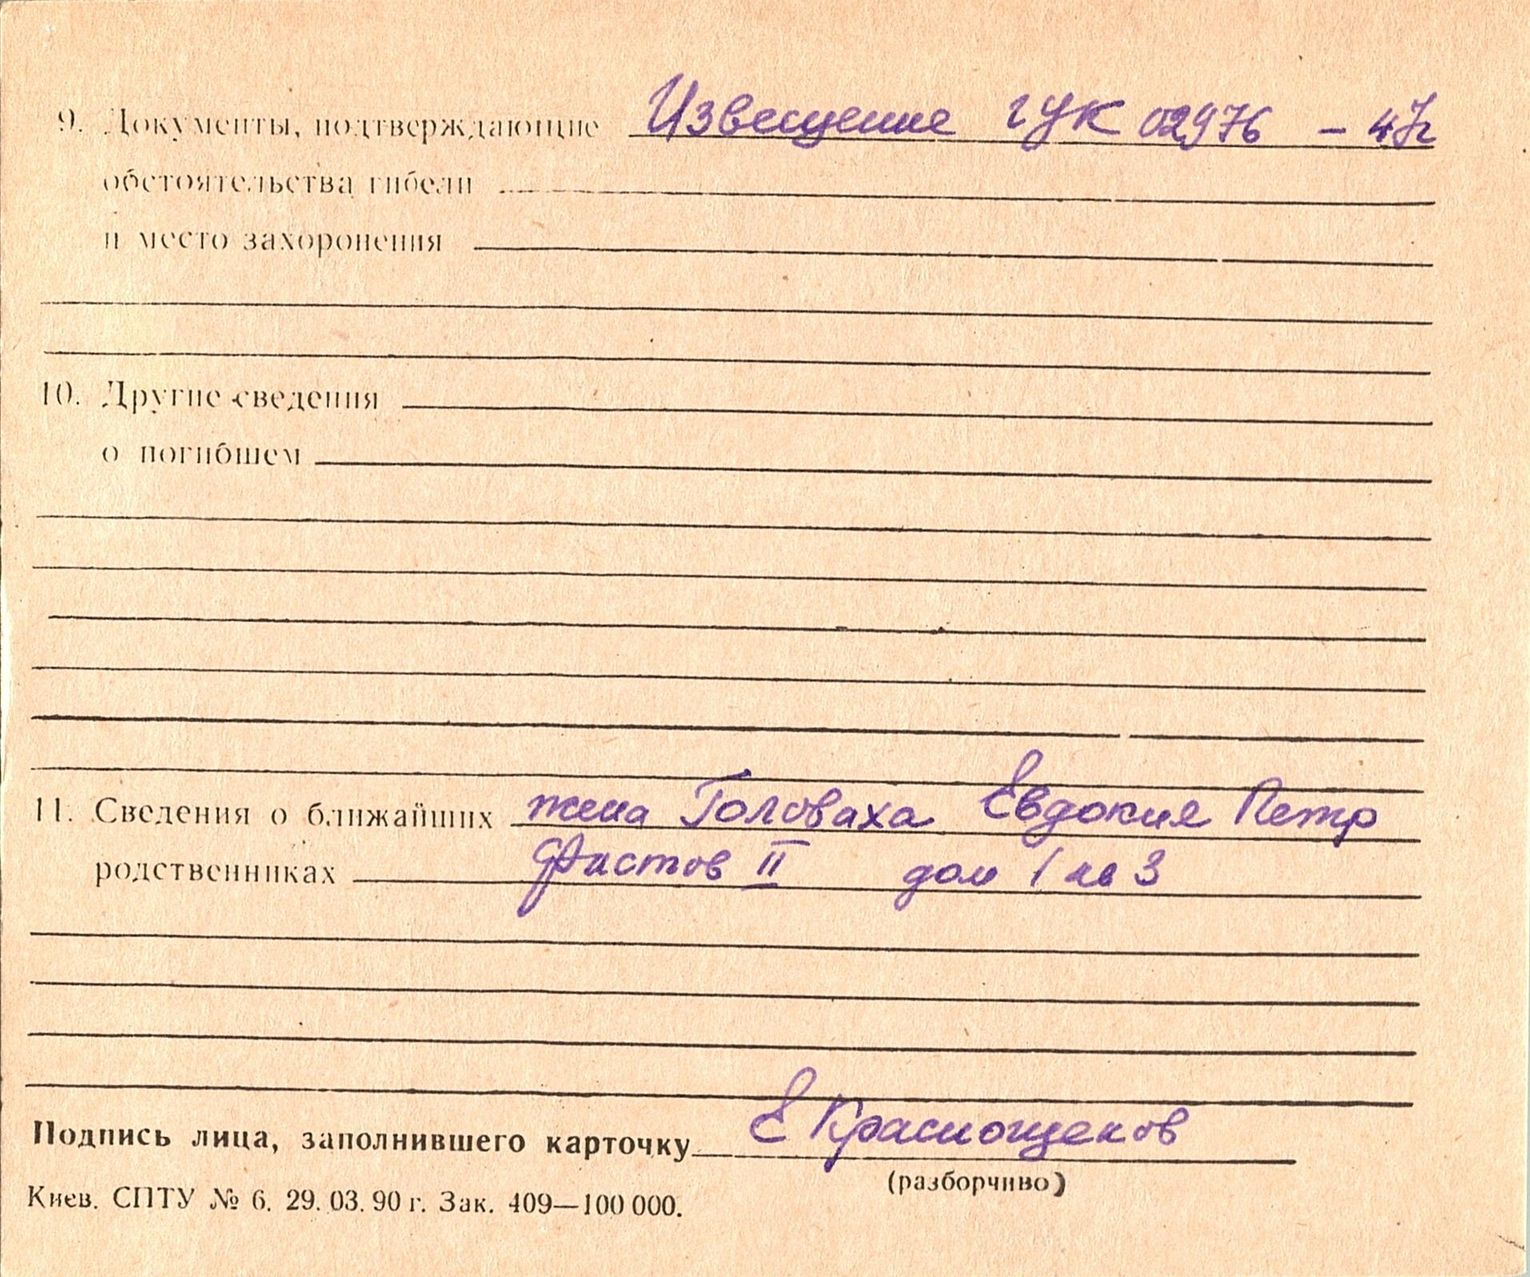 9. Документы, подтверждающие Извещение ГУК 02976 – 47г
обстоятельства гибели
и место захоронения
10. Другие сведения
о погибшем
11. Сведения о ближайших жена Головаха Евдокия Петр
родственниках Фастов II дом 1 кв 3
Подпись лица, заполнившего карточку Е Краснощеков
(разборчиво)
Киев. СПТУ № 6. 29. 03. 90 г. Зак. 409—100 000.